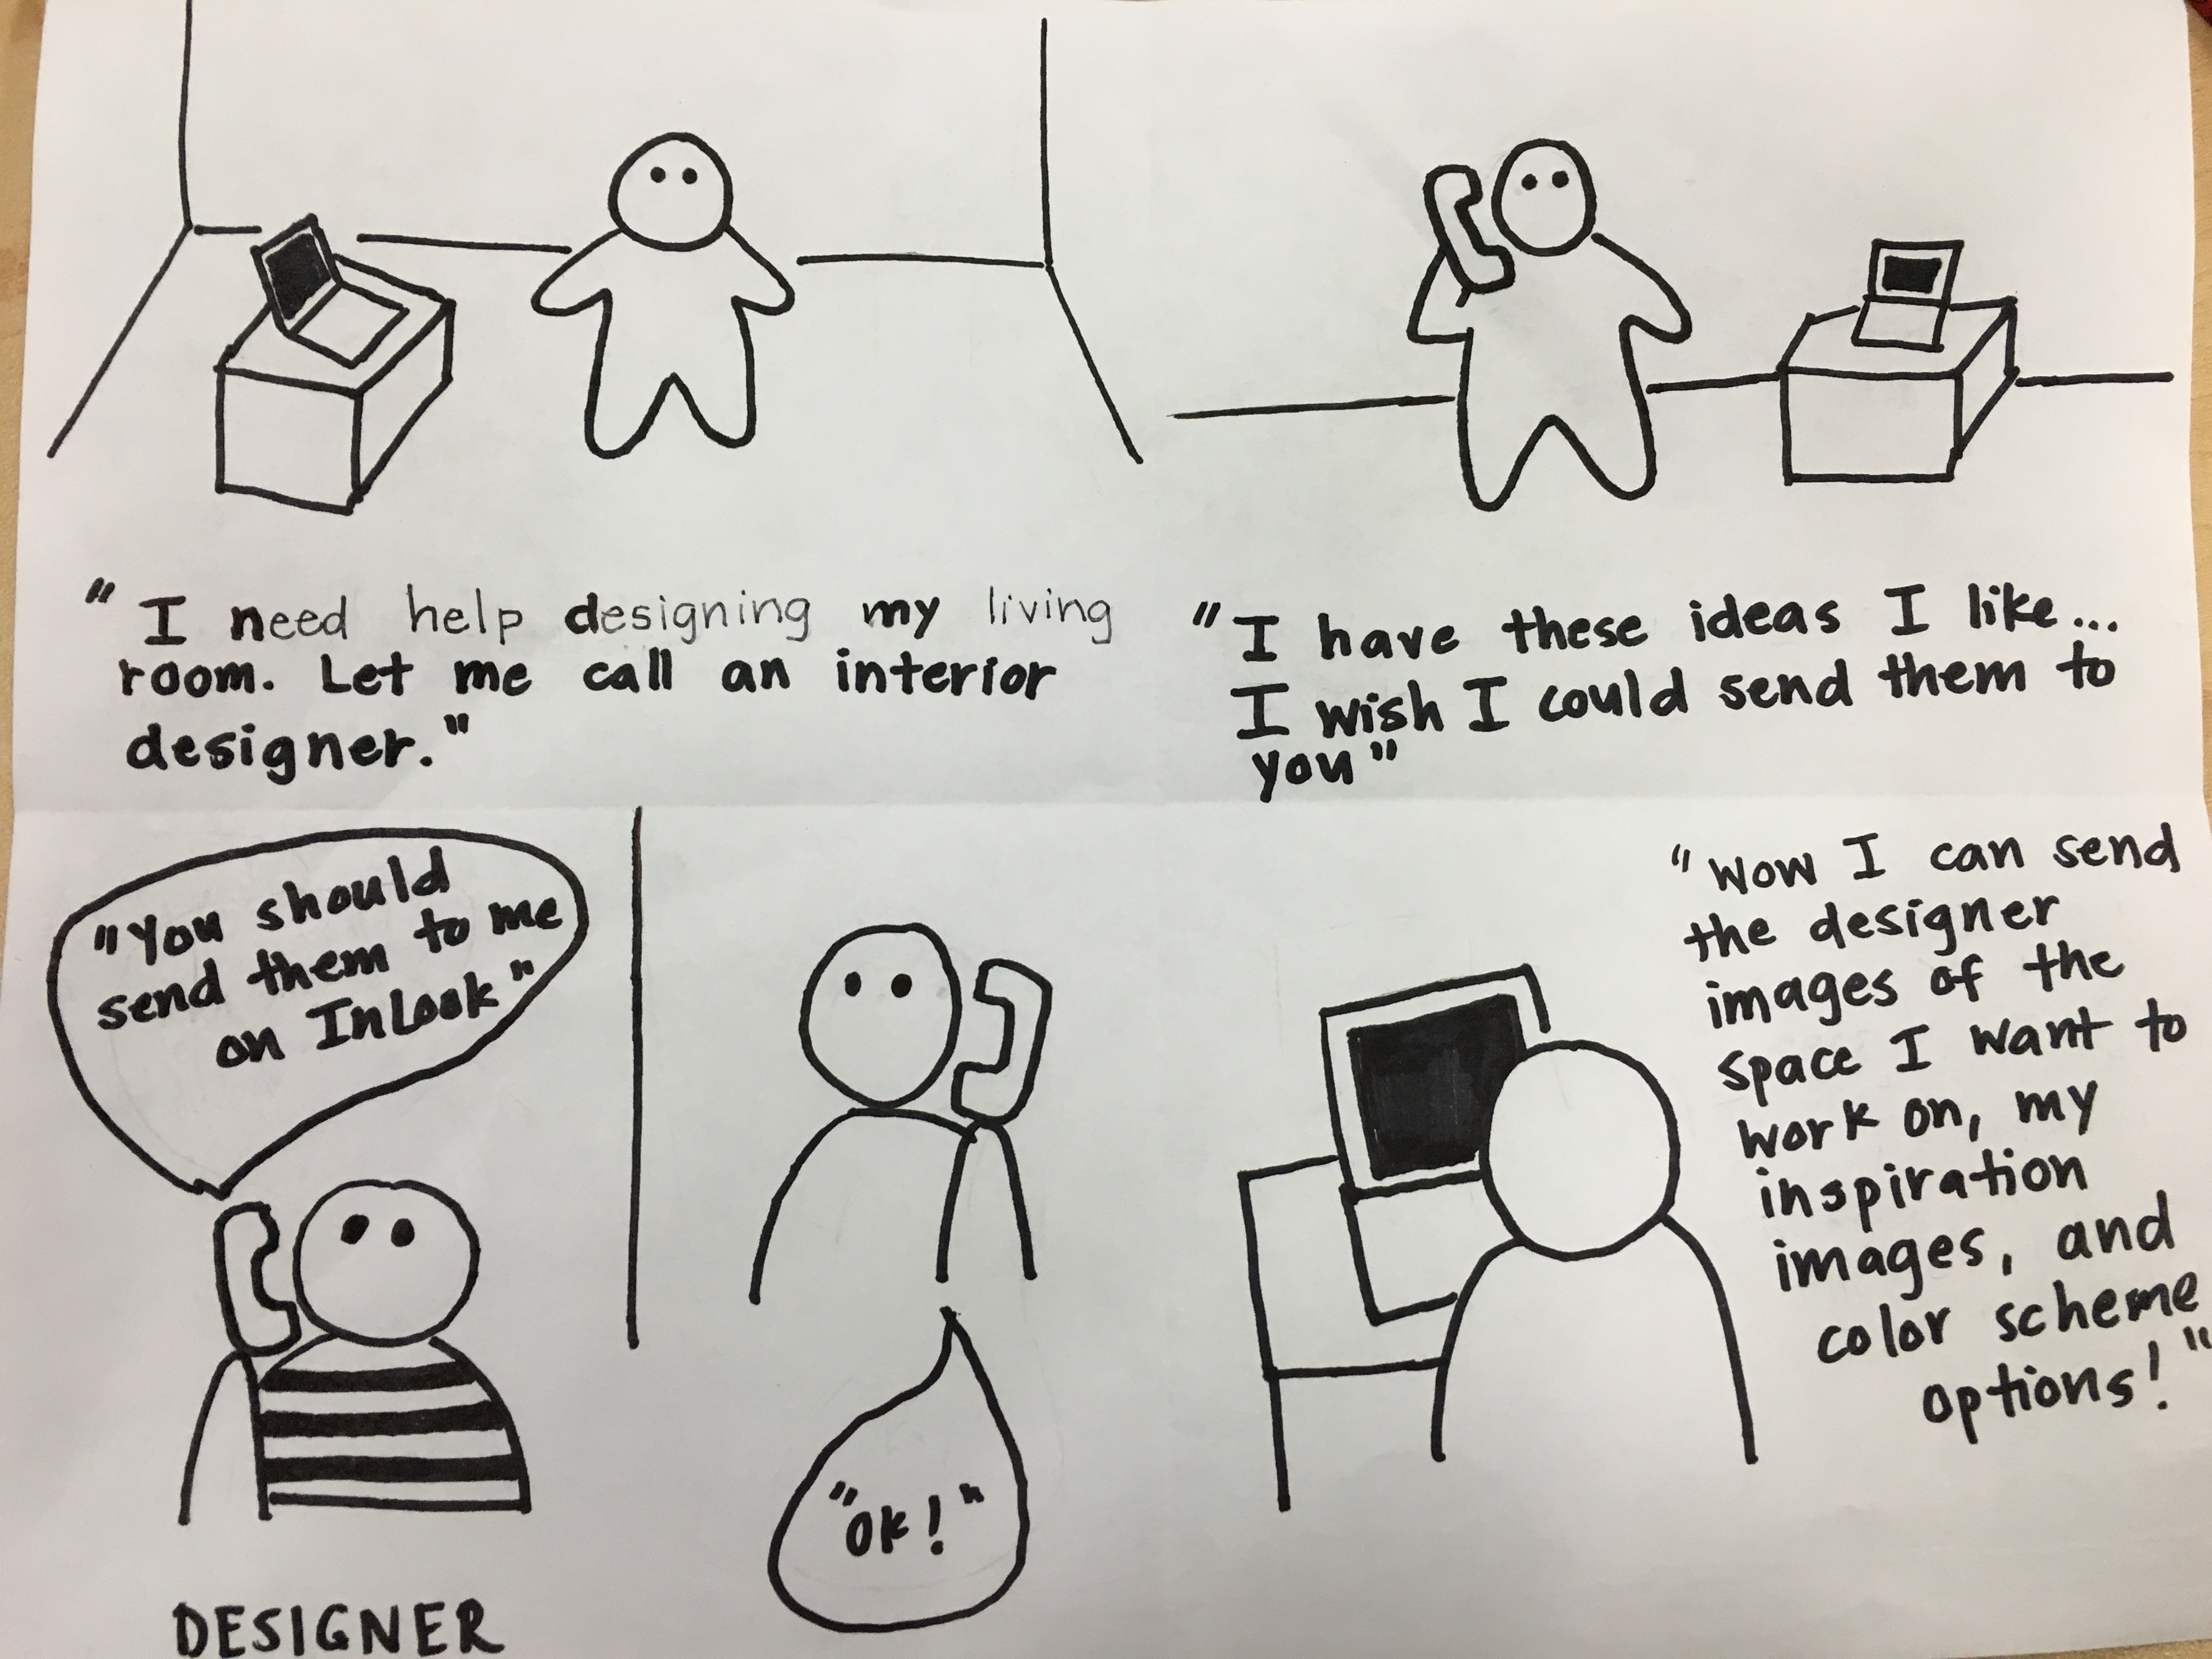 "I need help designing my living
room. Let me call an interior
designer."
"I have these ideas I like...
I wish I could send them to
you"
"You should
send them to me
on InLook"
DESIGNER
"OK!"
"Wow I can send
the designer
images of the
space I want to
work on, my
inspiration
images, and
color scheme
options!"